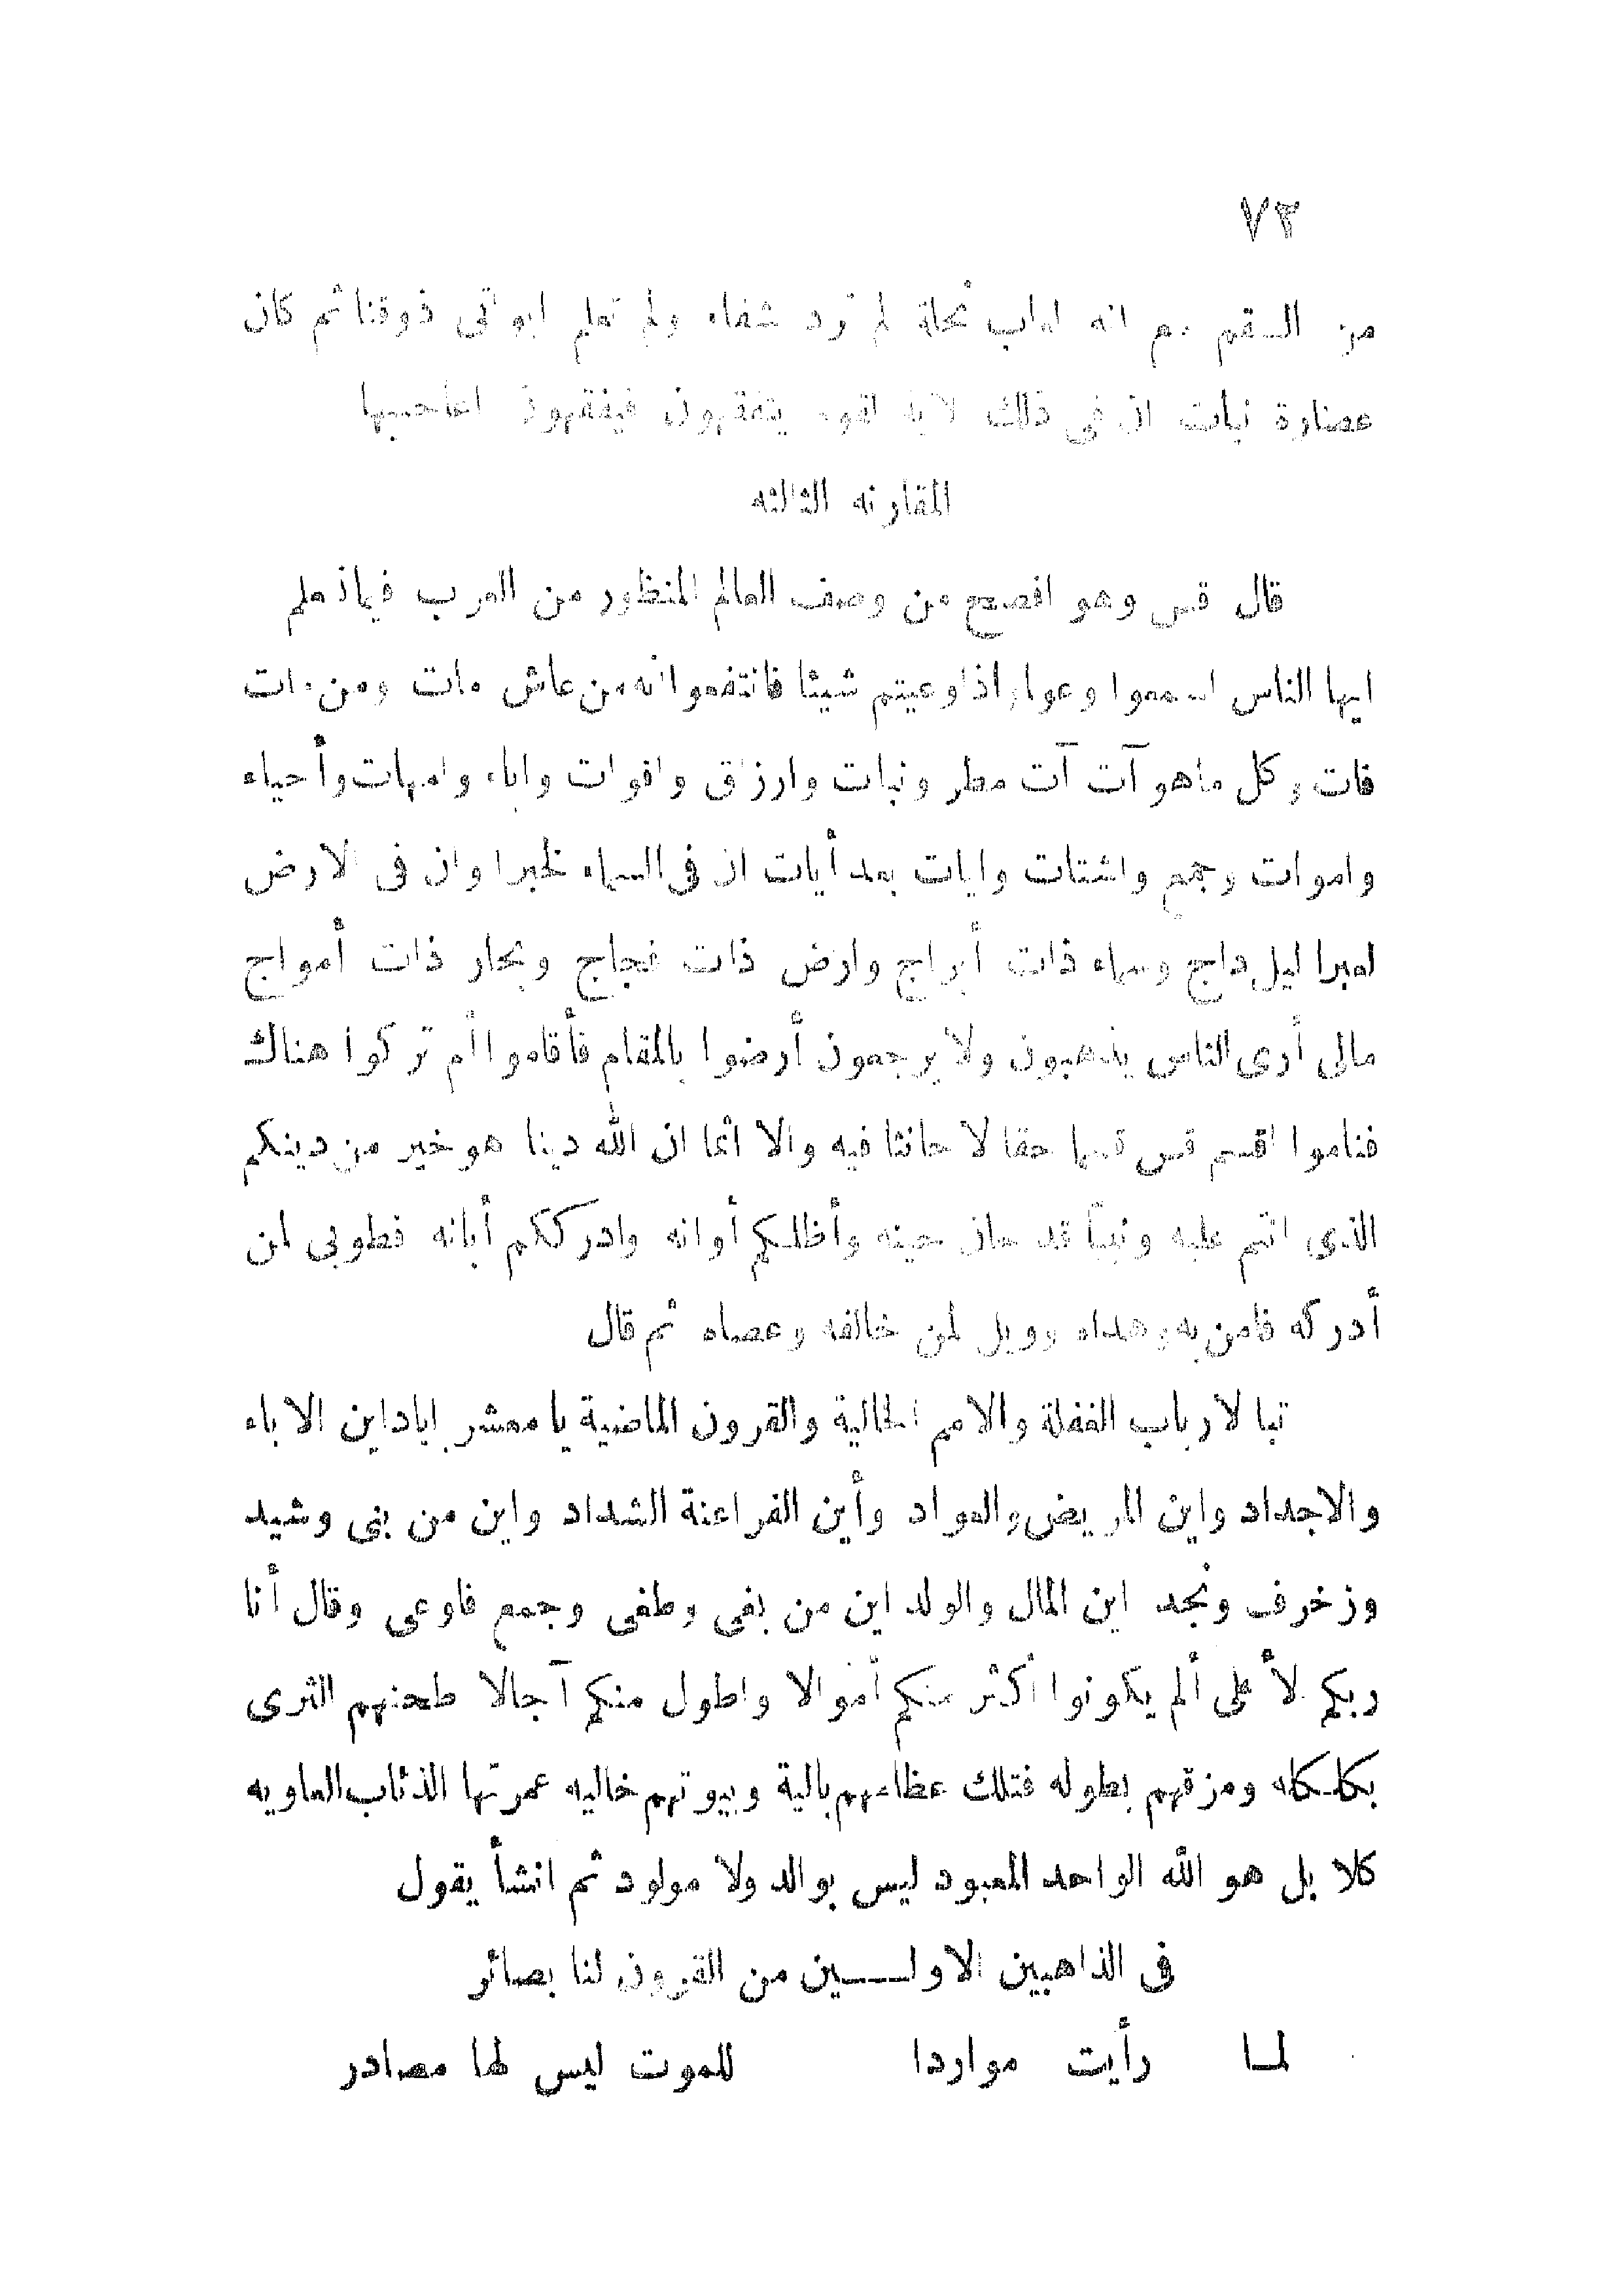 ٧٣
من السقم مع انه لعاب نحلة لم ترد شفاء ولم تعلم ابو تى ذوقنا ثم كان
عصارة نبات ان فى ذلك لاية لقوم يتفقهون فيفقهون
المقارنه الثالثه
قال قس وهو افصح من وصف العالم المنظور من العرب فيما نعلم
ايها الناس اسمعوا وعوا واذا وعيتم شيئا فانتفعوا انه من عاش مات ومن مات
فات وكل ما هو آت آت مطر ونبات وارزاق واقوات واباء وامهات وأحياء
واموات وجمع واشتات وايات بعد أيات ان فى السماء لخبرا وان فى الارض
لعبرا ليل داج وسماء ذات أبراج وارض ذات فجاج وبحار ذات أمواج
مالى أرى الناس يذهبون ولا يرجعون أرضوا بالمقام فأقاموا أم تركوا هناك
فناموا اقسم قس قسما حقا لا حانثا فيه والا اثما ان الله دينا هو خير من دينكم
الذى انتم عليه ونبيا قد حان حينه وأظلكم أوانه وادرككم أبانه فطوبى لمن
أدركه فامن به وهداه وويل لمن خالفه وعصاه ثم قال
تبا لارباب الغفلة والامم الخالية والقرون الماضية يا معشر اياد اين الاباء
والاجداد واين المريض والعواد وأين الفراعنة الشداد واين من بنى وشيد
وزخرف ونجد اين المال والولد اين من بغى وطغى وجمع فاوعى وقال أنا
ربكم الأعلى ألم يكونوا أكثر منكم أموالا واطول منكم آجالا طحنهم الثرى
بكلكله ومزقهم بطوله فتلك عظامهم بالية وبيوتهم خاليه عمرتها الذئاب العاويه
كلا بل هو الله الواحد المعبود ليس بوالد ولا مولود ثم انشأ يقول
فى الذاهبين الاولـــين من القرون لنا بصائر
لمـا رأيت مواردا للموت ليس لها مصادر